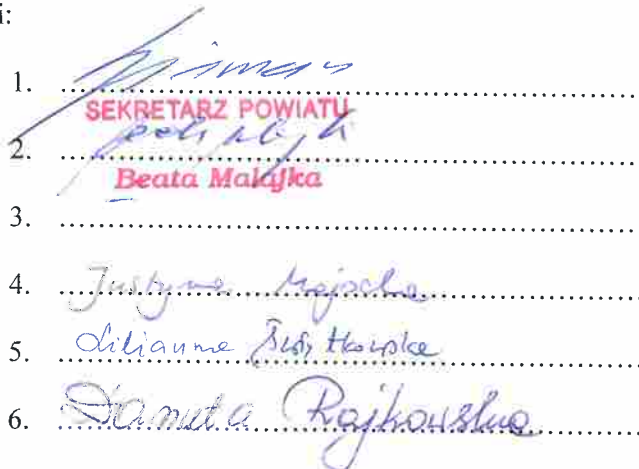 i:
1. ......................................................
SEKRETARZ POWIATU
2. ......................................................
Beata Malajka
3. ......................................................
4. Justyna Majocha
5. Lilianna
6. Danuta Rajkowska